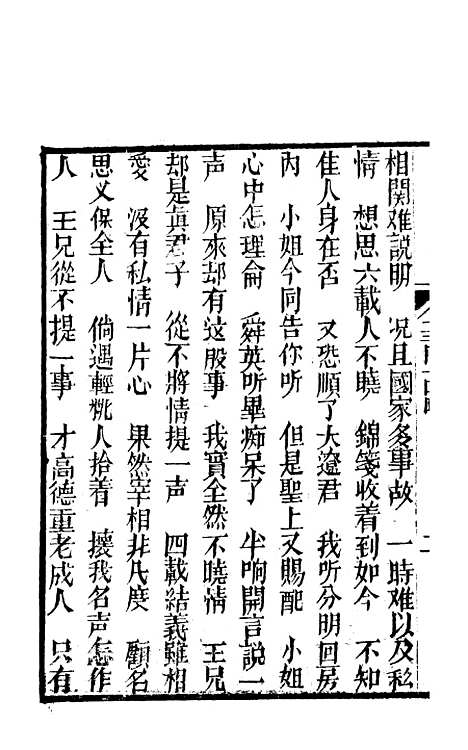 相関难說明　况且國家多事故　一時难以及私
情　想思六載人不曉　錦箋收着到如今　不知
佳人身在否　又恐順了大遼君　我听分明回房
內　小姐今同告你听　但是聖上又賜配　小姐
心中怎理侖　舜英听畢痴呆了　半晌開言說一
声　原來却有这般事　我實全然不曉情　王兄
却是真君子　從不將情提一声　四載結義雖相
愛　沒有私情一片心　果然宰相非凢度　顧名
思义保全人　倘遇輕桃人拾着　攘我名声怎作
人　王兄從不提一事　才高德重老成人　只有